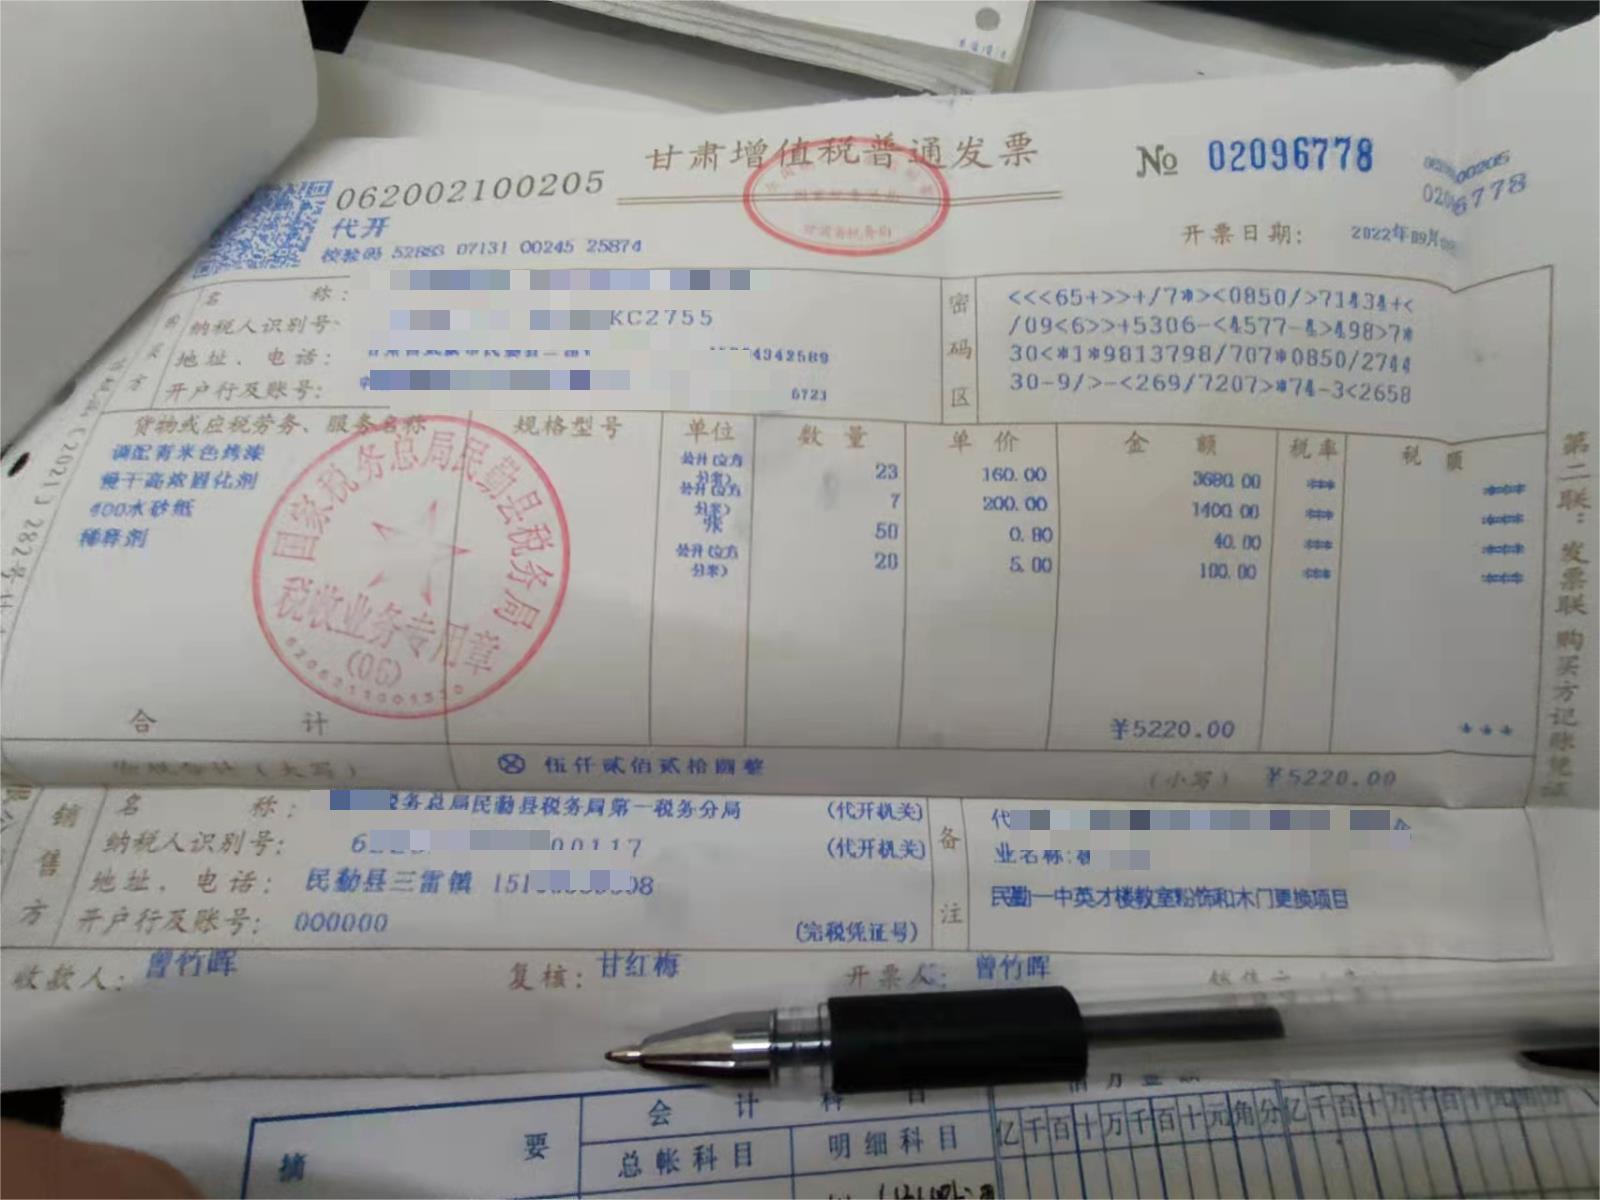 甘肃增值税普通发票
№ 02096778
062002100205
062002100205
02096778
代开
校验码 52883 07131 00245 25874
开票日期: 2022年09月
国家税务总局
甘肃省税务局
名 称:
纳税人识别号: KC2755
地址、电话: 4342589
开户行及账号: 6723
密码区
<<<65+>>+/7*><0850/>71434+<
/09<6>>+5306-<4577-4>498>7*
30<*1*9813798/707*0850/2744
30-9/>-<269/7207>*74-3<2658
货物或应税劳务、服务名称 规格型号 单位 数量 单价 金额 税率 税额
调配青米色烤漆 公升(立方分米) 23 160.00 3680.00 *** ***
慢干高浓固化剂 公升(立方分米) 7 200.00 1400.00 *** ***
400水砂纸 张 50 0.80 40.00 *** ***
稀释剂 公升(立方分米) 20 5.00 100.00 *** ***
国家税务总局民勤县税务局
税收业务专用章
(06)
合 计 ¥5220.00 ***
价税合计(大写) ⊗ 伍仟贰佰贰拾圆整 (小写) ¥5220.00
第二联:发票联 购买方记账凭证
销售方
名 称: 税务总局民勤县税务局第一税务分局 (代开机关)
纳税人识别号: 6 00117 (代开机关)
地址、电话: 民勤县三雷镇 151 08
开户行及账号: 000000 (完税凭证号)
备注
代
业名称:
民勤一中英才楼教室粉饰和木门更换项目
收款人: 曾竹晖 复核: 甘红梅 开票人: 曾竹晖
摘 要
会 计 科 目
总帐科目 明细科目
亿千百十万千百十元角分
亿千百十万千百十元角分